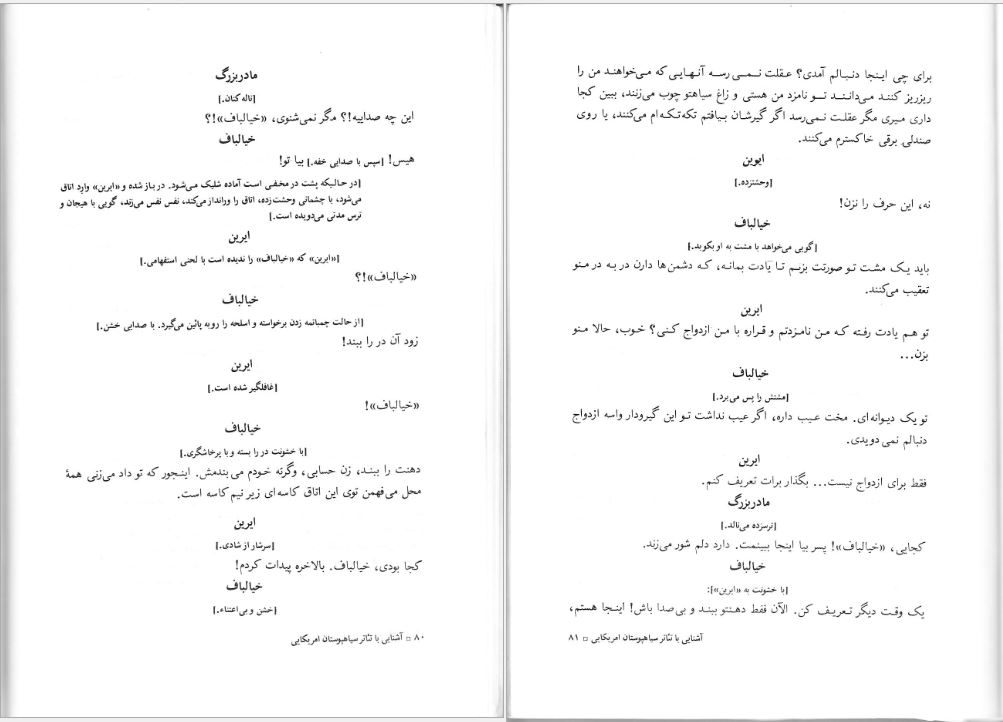 مادربزرگ
[ناله کنان.]
این چه صداییه!؟ مگر نمی‌شنوی، «خیالباف»!؟
خیالباف
هیس! [سپس با صدایی خفه.] بیا تو!
[در حالیکه پشت در مخفی است آماده شلیک می‌شود. در باز شده و «ایرین» وارد اتاق
می‌شود، با چشمانی وحشت‌زده، اتاق را ورانداز می‌کند، نفس نفس می‌زند، گویی با هیجان و
ترس مدتی می‌دویده است.]
ایرین
[«ایرین» که «خیالباف» را ندیده است با لحنی استفهامی.]
«خیالباف»!؟
خیالباف
[از حالت چمباتمه زدن برخواسته و اسلحه را رو به پائین می‌گیرد. با صدایی خشن.]
زود آن در را ببند!
ایرین
[غافلگیر شده است.]
«خیالباف»!
خیالباف
[با خشونت در را بسته و با پرخاشگری.]
دهنت را ببند، زن حسابی، وگرنه خودم می‌بندمش. اینجور که تو داد می‌زنی همهٔ
محل می‌فهمن توی این اتاق کاسه‌ای زیر نیم کاسه است.
ایرین
[سرشار از شادی.]
کجا بودی، خیالباف. بالاخره پیدات کردم!
خیالباف
[خشن و بی‌اعتناء.]
۸۰ □ آشنایی با تئاتر سیاهپوستان امریکایی
برای چی اینجا دنبالم آمدی؟ عقلت نمی‌رسه آنهایی که می‌خواهند من را
ریزریز کنند می‌دانند تو نامزد من هستی و زاغ سیاهتو چوب می‌زنند، ببین کجا
داری میری مگر عقلت نمی‌رسد اگر گیرشان بیافتم تکه‌تکه‌ام می‌کنند، یا روی
صندلی برقی خاکسترم می‌کنند.
ایوین
[وحشتزده.]
نه، این حرف را نزن!
خیالباف
[گویی می‌خواهد با مشت به او بکوبد.]
باید یک مشت تو صورتت بزنم تا یادت بمانه، که دشمن‌ها دارن در به در منو
تعقیب می‌کنند.
ایرین
تو هم یادت رفته که من نامزدتم و قراره با من ازدواج کنی؟ خوب، حالا منو
بزن...
خیالباف
[مشتش را پس می‌برد.]
تو یک دیوانه‌ای. مخت عیب داره، اگر عیب نداشت تو این گیرودار واسه ازدواج
دنبالم نمی‌دویدی.
ایرین
فقط برای ازدواج نیست... بگذار برات تعریف کنم.
مادربزرگ
[ترسزده می‌نالد.]
کجایی، «خیالباف»! پسر بیا اینجا ببینمت. دارد دلم شور می‌زند.
خیالباف
[با خشونت به «ایرین»]:
یک وقت دیگر تعریف کن. الآن فقط دهنتو ببند و بی‌صدا باش! اینجا هستم،
آشنایی با تئاتر سیاهپوستان امریکایی □ ۸۱